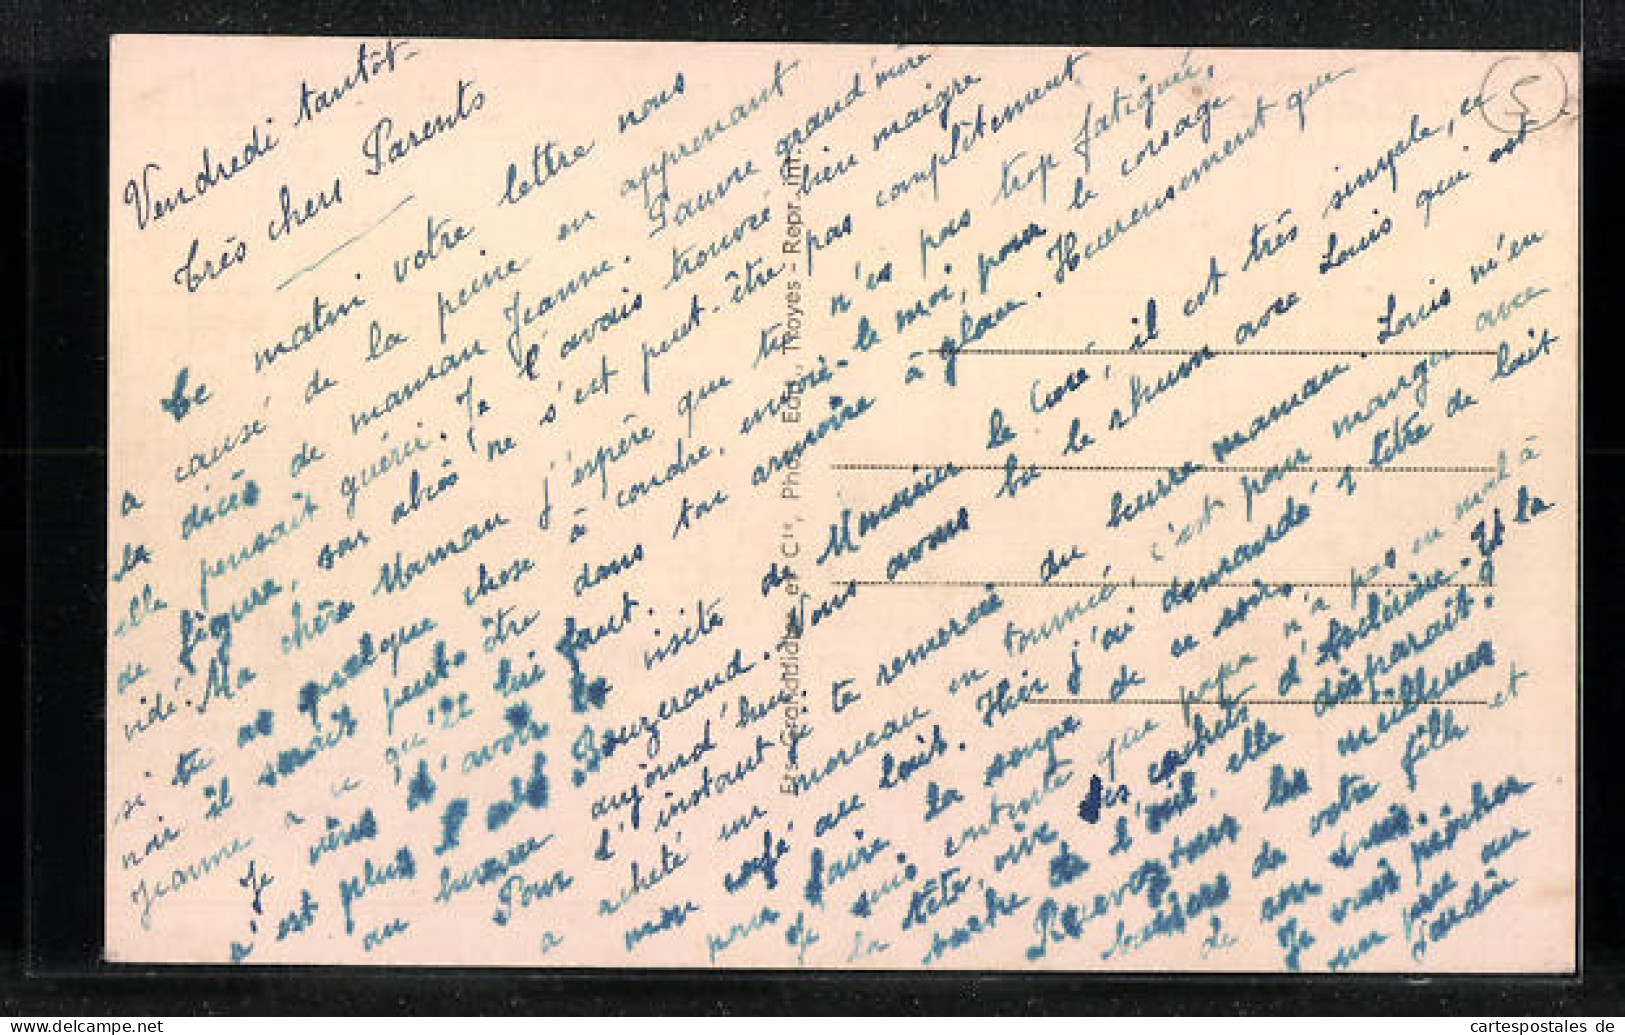 Vendredi tantôt-
très chers Parents
Ce matin votre lettre nous
a causé de la peine en apprenant
la décès de maman Jeanne. Pauvre grand'mère
elle pensait guérir. Je l'avais trouvée bien maigre
de figure, son abcès ne s'est peut-être pas complètement
vidé. Ma chère Maman j'espère que tu n'es pas trop fatiguée,
si tu as quelque chose à coudre, envoie-le moi, pour le corsage
noir il serait peut-être dans ton armoire à glace. Heureusement que
Jeanne a ce qu'il lui faut.
Je viens d'avoir la visite de Monsieur le Curé, il est très simple, ce
n'est plus l'abbé Bouzerand. Nous avons bu le rhum avec Louis qui est
au bureau aujourd'hui.
Pour l'instant je te remercie du beurre maman. Louis m'en
a acheté un morceau en tournée, c'est pour manger avec
mon café au lait. Hier j'ai demandé 1 litre de lait
pour faire la soupe de ce soir,
Je suis contente que papa n'a pas eu mal à
la tête, vive les cachets d' Et la
de l'œil, elle disparait?
Recevez tous les meilleurs
baisers de votre fille et
de son Louis.
Je vais pêcher
un peu au
jardin
5
Ets Grandidier et Cie, Phot. Edit., Troyes - Repr. Int.
cartespostales de